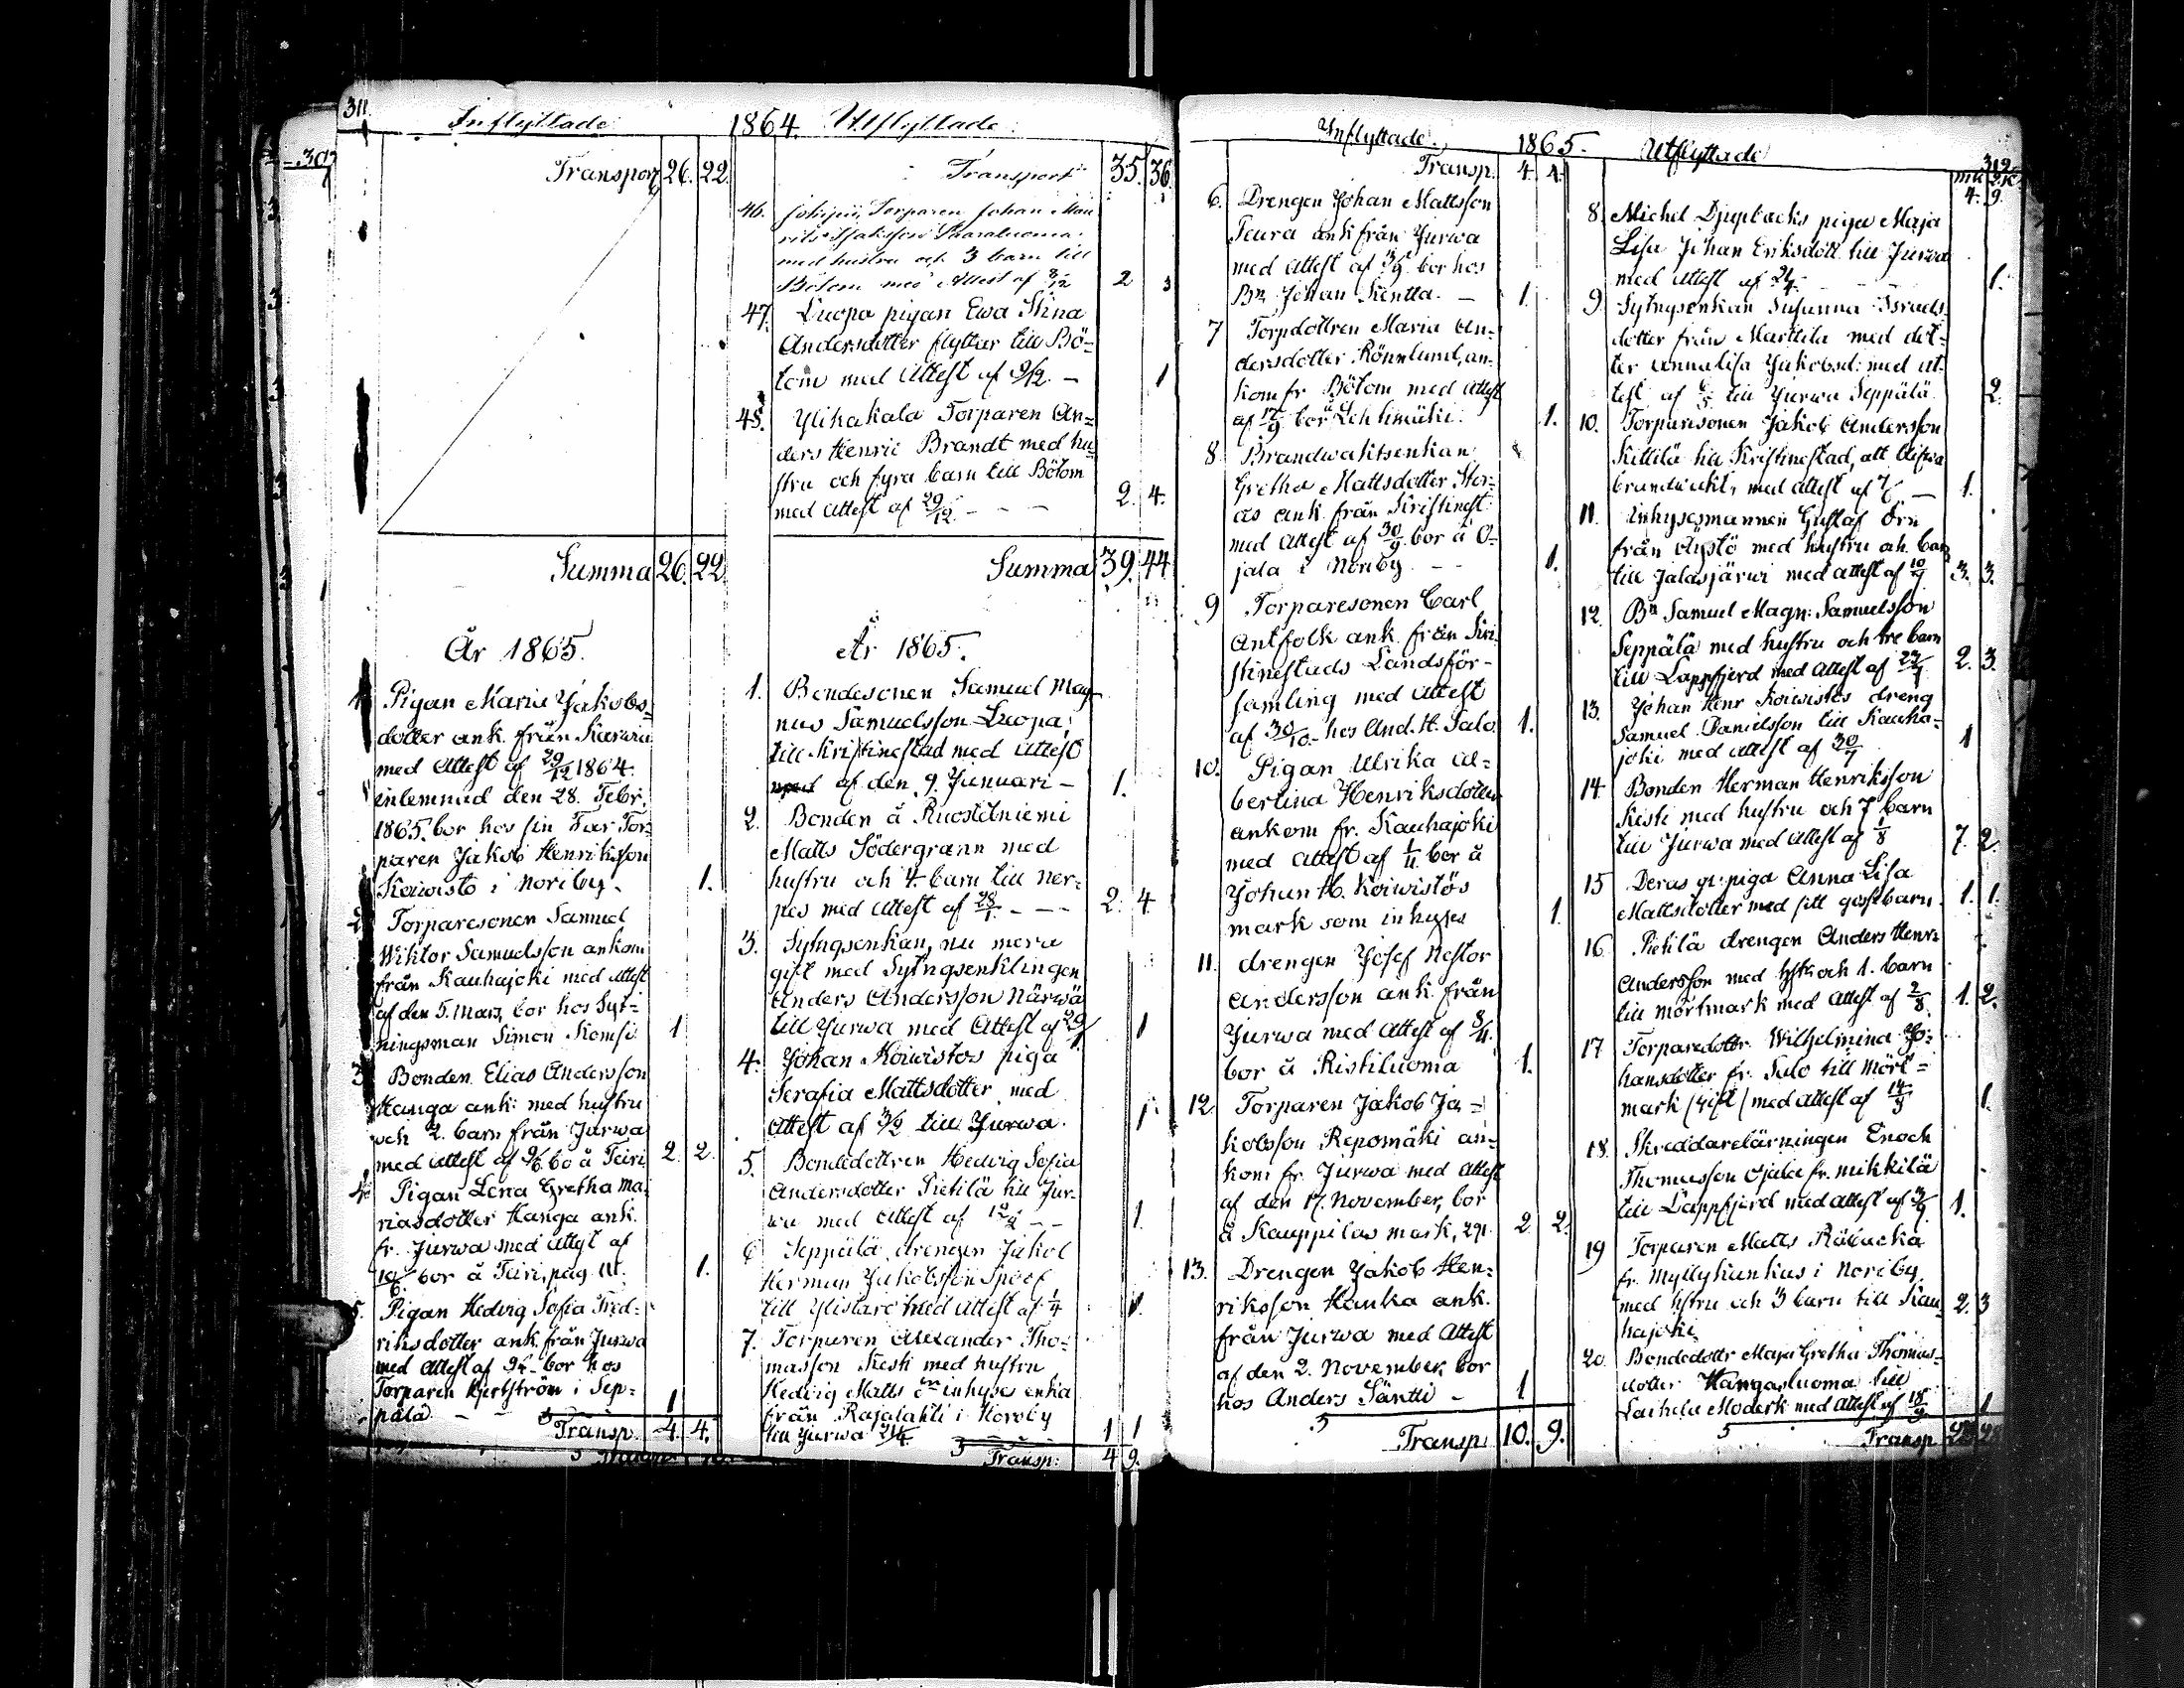 311.
Inflyttade
1864. Utflyttade.
Transport 26. 22.
Summa 26. 22
År 1865.
1. Pigan Maria Jakobs-
dotter ank. från
med Attest af 29/12 1864.
inlemnad den 28. Febr.
1865. bor hos sin Far Tor-
paren Jakob Henriksson
Koivisto i Noriby. 1.
2. Torparesonen Samuel
Wiktor Samuelsson ankom
från Kauhajoki med Attest
af den 5. Mars, bor hos Syt-
ningsman Simon 1
3. Bonden Elias Andersson
Hanga ank: med hustru
och 2. barn från Jurwa
med Attest af 9/6 bo å Teiri 2. 2.
4. Pigan Lena Gretha Ma-
riasdotter Hanga ank.
fr. Jurwa med Attest af
bor å Teiri, pag. 1.
5. Pigan Hedvig Sofia Fred-
riksdotter ank. från Jurwa
med Attest af bor hos
Torparen i Sep-
pälä 1
Transp. 4. 4.
Transport 35. 36.
46. Torparen Johan Mau
rits
med hustru och 3 barn till
Bötom med Attest af 2 3
47. Luopa pigan Ewa Stina
Andersdotter flyttar till Bö-
tom med Attest af 9/12. - 1
48. Ylikakala Torparen An-
ders Henric Brandt med hu-
stru och fyra barn till Bötom
med Attest af 29/12. - - - 2. 4.
Summa 39. 44
År 1865.
1. Bondesonen Samuel Mag-
nus Samuelsson Luopa,
till Kristinestad med Attest
af den 9. Januari - 1.
2. Bonden å Ruostelniemi
Matts Södergrann med
hustru och 4. barn till Ner-
pes med Attest af 28/1. - - - 2. 4.
3. Sytngsenkan, nu mera
gift med Sytngsenklingen
Anders Andersson Närwä
till Jurwa med Attest af 1
4. Johan Koiwistos piga
Serafia Mattsdotter med
Attest af 3/2 till Jurwa. 1.
5. Bondedottren Hedvig Sofia
Andersdotter Pietilä till Jur-
wa med Attest af - - 1.
6 Seppälä drengen Jakob
Herman Jakobsson Spoof
till Ylistaro med Attest af 1/4 1.
7. Torparen Alexander Tho-
masson Keski med hustru
Hedvig Matts inhyses enka
från Rajalahti i Noroby
till Jurwa 1 1
Transp: 4 9.
Inflyttade. 1865. Utflyttade
312.
Transp. 4. 4.
6. Drengen Johan Mattsson
Teura ank från Jurwa
med Attest af bor hos
Bn Johan Kentta. - 1.
7 Torpdottren Maria An-
dersdotter Rönnlund, an-
kom fr. Bötom med Attest
af 17/9 bor å Lehtimäki. 1.
8. Brandwaktsenkan
Gretha Mattsdotter Stor-
ås ank. från Kristinest.
med Attest af 30/9. bor å O-
jala i Noriby - - 1.
9 Torparesonen Carl
Antfolk ank. från Kri-
stinestads Landsför-
samling med Attest
af 30/10. hos And. H. Salo 1.
10. Pigan Ulrika Al-
bertina Henriksdotter
ankom fr. Kauhajoki
med Attest af 1/11. bor å
Johan H. Koiwistos
mark som inhyses 1.
11. drengen Josef Nestor
Andersson ank. från
Jurwa med Attest af 3/11.
bor å Ristiluoma 1.
12. Torparen Jakob Ja-
kobsson Repomäki an-
kom fr. Jurwa med Attest
af den 17. November, bor
å Kauppilas mark, 291. 2 2.
13. Drengen Jakob Hen-
riksson Hauka ank.
från Jurwa med Attest
af den 2. November, bor
hos Anders Säntti - 1
Transp. 10. 9.
4. 9.
8. Michel Djupbacks piga Maja
Lisa Johan Eriksdott. till Jurwa
med Attest af 1.
9. Sytngsenkan Susanna Israels-
dotter från Marttila med dot-
ter Annalisa Jakobsd: med At-
test af till Jurwa Seppälä. 2.
10. Torparesonen Jakob Andersson
Kittilä till Kristinestad, att blifwa
brandwakt, med Attest af - 1.
11. Inhysesmannen Gustaf Örn
från Äystö med hustru och barn
till Jalasjärwi med Attest af 3. 3.
12. Bn Samuel Magn: Samuelsson
Seppälä med hustru och tre barn
till Lappfjerd med Attest af 2. 3.
13. Johan Henr Koiwistos dreng
Samuel Danielsson till Kauha-
joki med Attest af 1
14. Bonden Herman Henriksson
Keski med hustru och 7 barn
till Jurwa med Attest af 1/8 7. 2.
15 Deras piga Anna Lisa
Mattsdotter med sitt gossbarn. 1. 1.
16. Pietilä drengen Anders Henr.
Andersson med hstr och 1. barn
till mörtmark med Attest af 2/8. 1. 2.
17 Torparedottr. Wilhelmina Jo-
hansdotter fr. Salo till Mört-
mark (gift) med Attest af 14/9 1.
18. Skreddarelärningen Enoch
Thomasson Ojala fr. Mikkilä
till Lappfjerd med Attest af 1.
19 Torparen Matts
fr. Myllykankas i Noriby
med hstru och 3 barn till Kau-
hajoki 2. 3
20. Bondedottr Maja Gretha Thomas-
dotter Kangasluoma till
Laihela med Attest af 18/9 1
Transp